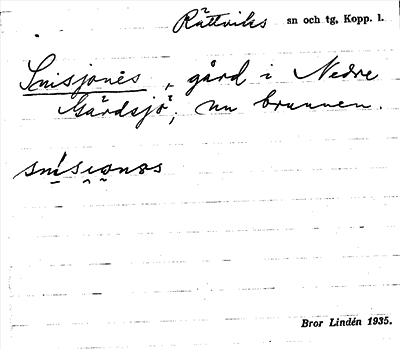 Rättviks sn och tg, Kopp. l.
Snisjonès, gård i Nedre
Gärdsjö; nu brunnen.
Bror Lindén 1935.